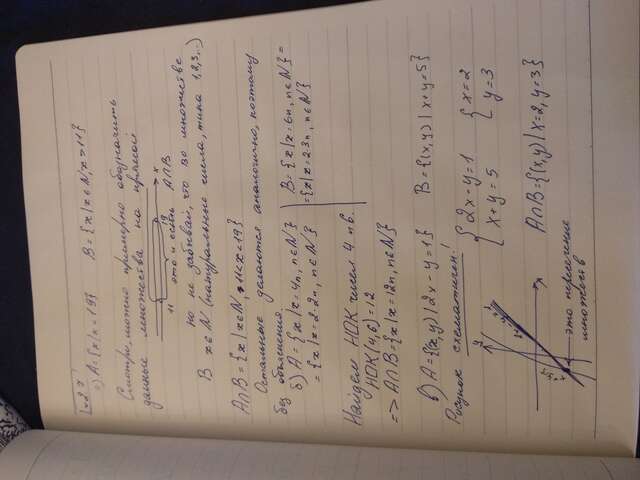 а) A={x|x<19}   B={x|x∈N, x>11}
Смотри, можно примерно обозначить
данные множества на прямой
11   19   x
это и есть A∩B
но не забывай, что во множестве
B x∈N (натуральные числа, типа 1,2,3,..)
A∩B={x|x∈N, 11<x<19}
Остальные делаются аналогично, поэтому
без объяснения.
б) A={x|x=4n, n∈N}   B={x|x=6n, n∈N}=
={x|x=2·2n, n∈N}   ={x|x=2·3n, n∈N}
Найдем НОК чисел 4 и 6.
НОК(4,6)=12
=> A∩B={x|x=12n, n∈N}
в) A={(x,y)|2x-y=1}   B={(x,y)|x+y=5}
Рисунок схематичен!
{2x-y=1   {x=2
{x+y=5   {y=3
y
x
A∩B={(x,y)|x=2, y=3}
это пересечение
множеств